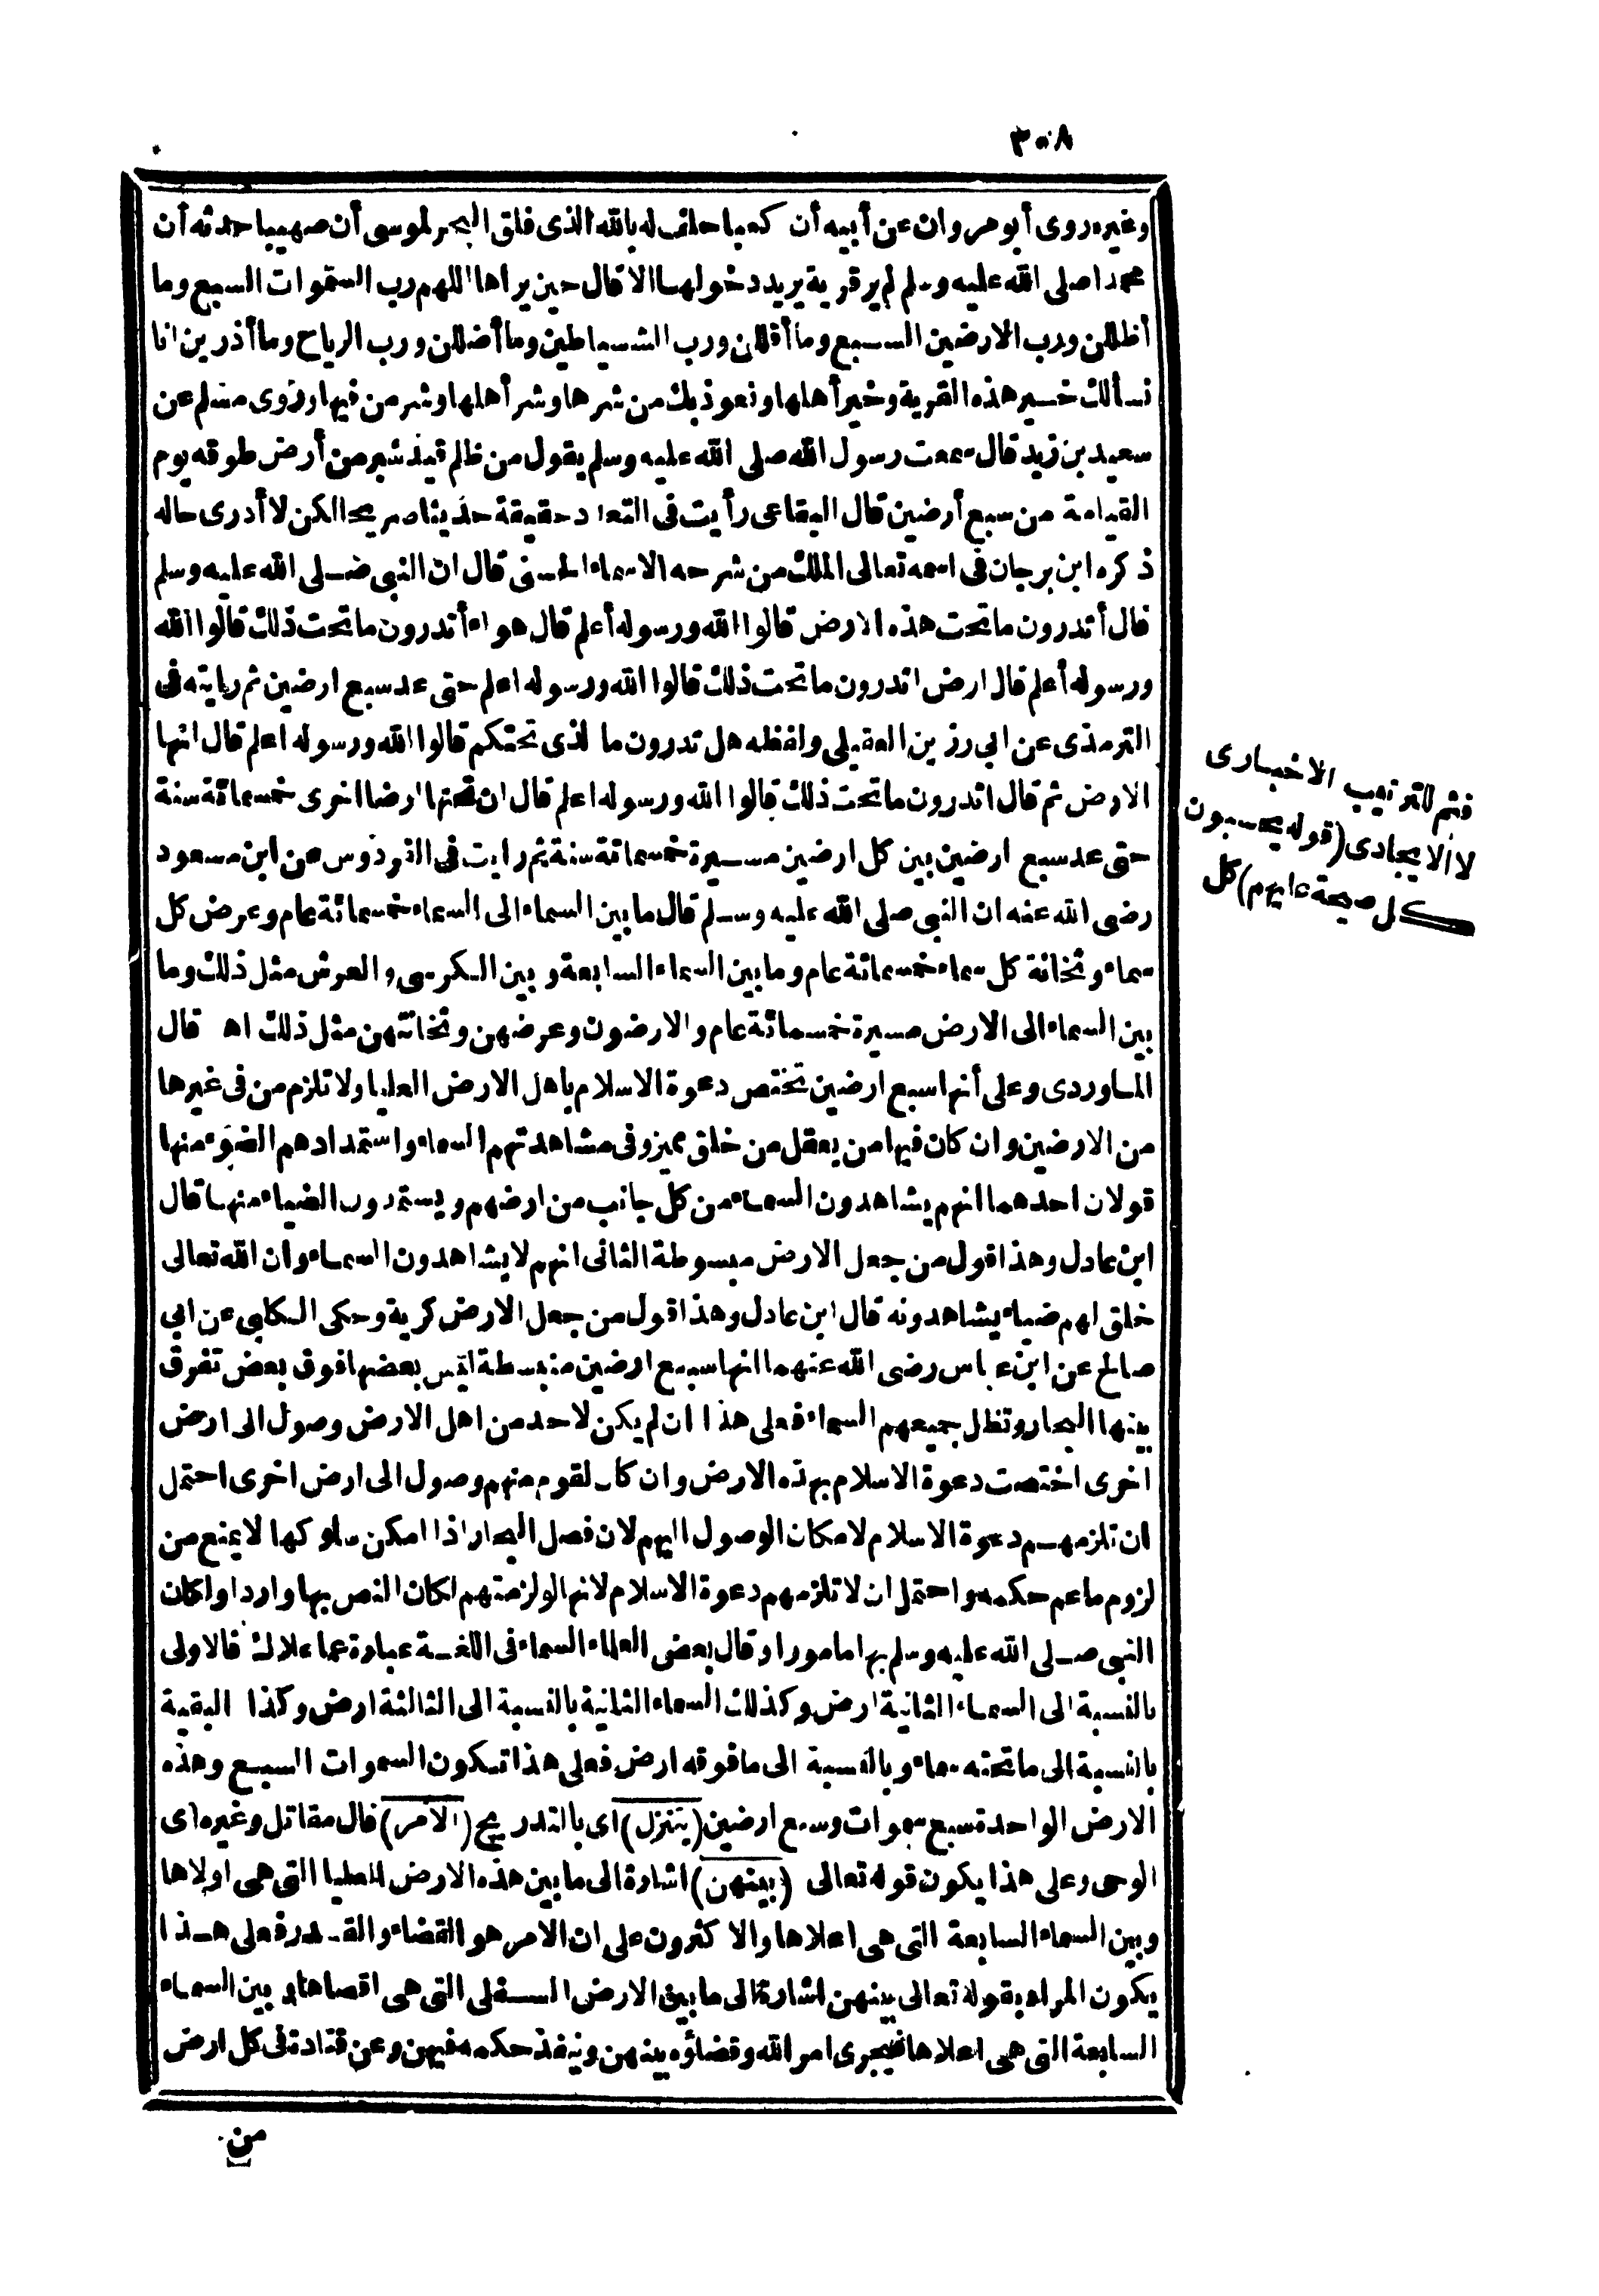 ٣٠٨
وغيره روى أبو مروان عن أبيه أن كعبا حلف له بالله الذى فلق البحر لموسى أن صهيبا حدثه أن
محمدا صلى الله عليه وسلم لم ير قرية يريد دخولها الا قال حين يراها اللهم رب السموات السبع وما
أظللن ورب الارضين السبع وما أقللن ورب الشياطين وما أضللن ورب الرياح وما أذرين انا
نسألك خير هذه القرية وخير أهلها ونعوذ بك من شرها وشر أهلها وشر من فيها وروى مسلم عن
سعيد بن زيد قال سمعت رسول الله صلى الله عليه وسلم يقول من ظلم قيد شبر من أرض طوقه يوم
القيامة من سبع أرضين قال البقاعى رأيت فى التعدد حقيقة حديثا صريحا لكن لا أدرى حاله
ذكره ابن برجان فى اسمه تعالى الملك من شرحه الاسماء الحسنى قال ان النبى صلى الله عليه وسلم
قال أتدرون ما تحت هذه الارض قالوا الله ورسوله أعلم قال هواء أتدرون ما تحت ذلك قالوا الله
ورسوله أعلم قال ارض اتدرون ما تحت ذلك قالوا الله ورسوله اعلم حتى عد سبع ارضين ثم رايته فى
الترمذى عن ابى رزين العقيلى ولفظه هل تدرون ما الذى تحتكم قالوا الله ورسوله اعلم قال انها
الارض ثم قال اتدرون ما تحت ذلك قالوا الله ورسوله اعلم قال ان تحتها ارضا اخرى خمسمائة سنة
حتى عد سبع ارضين بين كل ارضين مسيرة خمسمائة سنة ثم رايت فى الفردوس عن ابن مسعود
رضى الله عنه ان النبى صلى الله عليه وسلم قال ما بين السماء الى السماء خمسمائة عام وعرض كل
سماء وثخانة كل سماء خمسمائة عام وما بين السماء السابعة وبين الكرسى والعرش مثل ذلك وما
بين السماء الى الارض مسيرة خمسمائة عام والارضون وعرضهن وثخانتهن مثل ذلك اه قال
الماوردى وعلى أنها سبع ارضين تختص دعوة الاسلام باهل الارض العليا ولا تلزم من فى غيرها
من الارضين وان كان فيها من يعقل من خلق مميز وفى مشاهدتهم السماء واستمدادهم الضوء منها
قولان احدهما انهم يشاهدون السماء من كل جانب من ارضهم ويستمدون الضياء منها قال
ابن عادل وهذا قول من جعل الارض مبسوطة الثانى انهم لا يشاهدون السماء وان الله تعالى
خلق لهم ضياء يشاهدونه قال ابن عادل وهذا قول من جعل الارض كرية وحكى الكلبى عن ابى
صالح عن ابن عباس رضى الله عنهما انها سبع ارضين منبسطة ليس بعضها فوق بعض تفرق
بينها البحار وتظل جميعهم السماء فعلى هذا ان لم يكن لاحد من اهل الارض وصول الى ارض
اخرى اختصت دعوة الاسلام بهذه الارض وان كان لقوم منهم وصول الى ارض اخرى احتمل
ان تلزمهم دعوة الاسلام لامكان الوصول اليهم لان فصل البحار اذا امكن سلوكها لا يمنع من
لزوم ما عم حكمه واحتمل ان لا تلزمهم دعوة الاسلام لانها لو لزمتهم لكان النص بها واردا ولكان
النبى صلى الله عليه وسلم بها مامورا وقال بعض العلماء السماء فى اللغة عبارة عما علاك فالاولى
بالنسبة الى السماء الثانية ارض وكذلك السماء الثانية بالنسبة الى الثالثة ارض وكذا البقية
بالنسبة الى ما تحته سماء وبالنسبة الى ما فوقه ارض فعلى هذا تكون السموات السبع وهذه
الارض الواحدة سبع سموات وسبع ارضين (يتنزل) اى بالتدريج (الامر) قال مقاتل وغيره اى
الوحى وعلى هذا يكون قوله تعالى (بينهن) اشارة الى ما بين هذه الارض العليا التى هى اولاها
وبين السماء السابعة التى هى اعلاها والاكثرون على ان الامر هو القضاء والقدر فعلى هذا
يكون المراد بقوله تعالى بينهن اشارة الى ما بين الارض السفلى التى هى اقصاها وبين السماء
السابعة التى هى اعلاها فيجرى امر الله وقضاؤه بينهن وينفذ حكمه فيهن وعن قتادة فى كل ارض
من
فثم للترتيب الاخبارى
لا الايجادى (قوله يحسبون
كل صيحة عليهم) كل